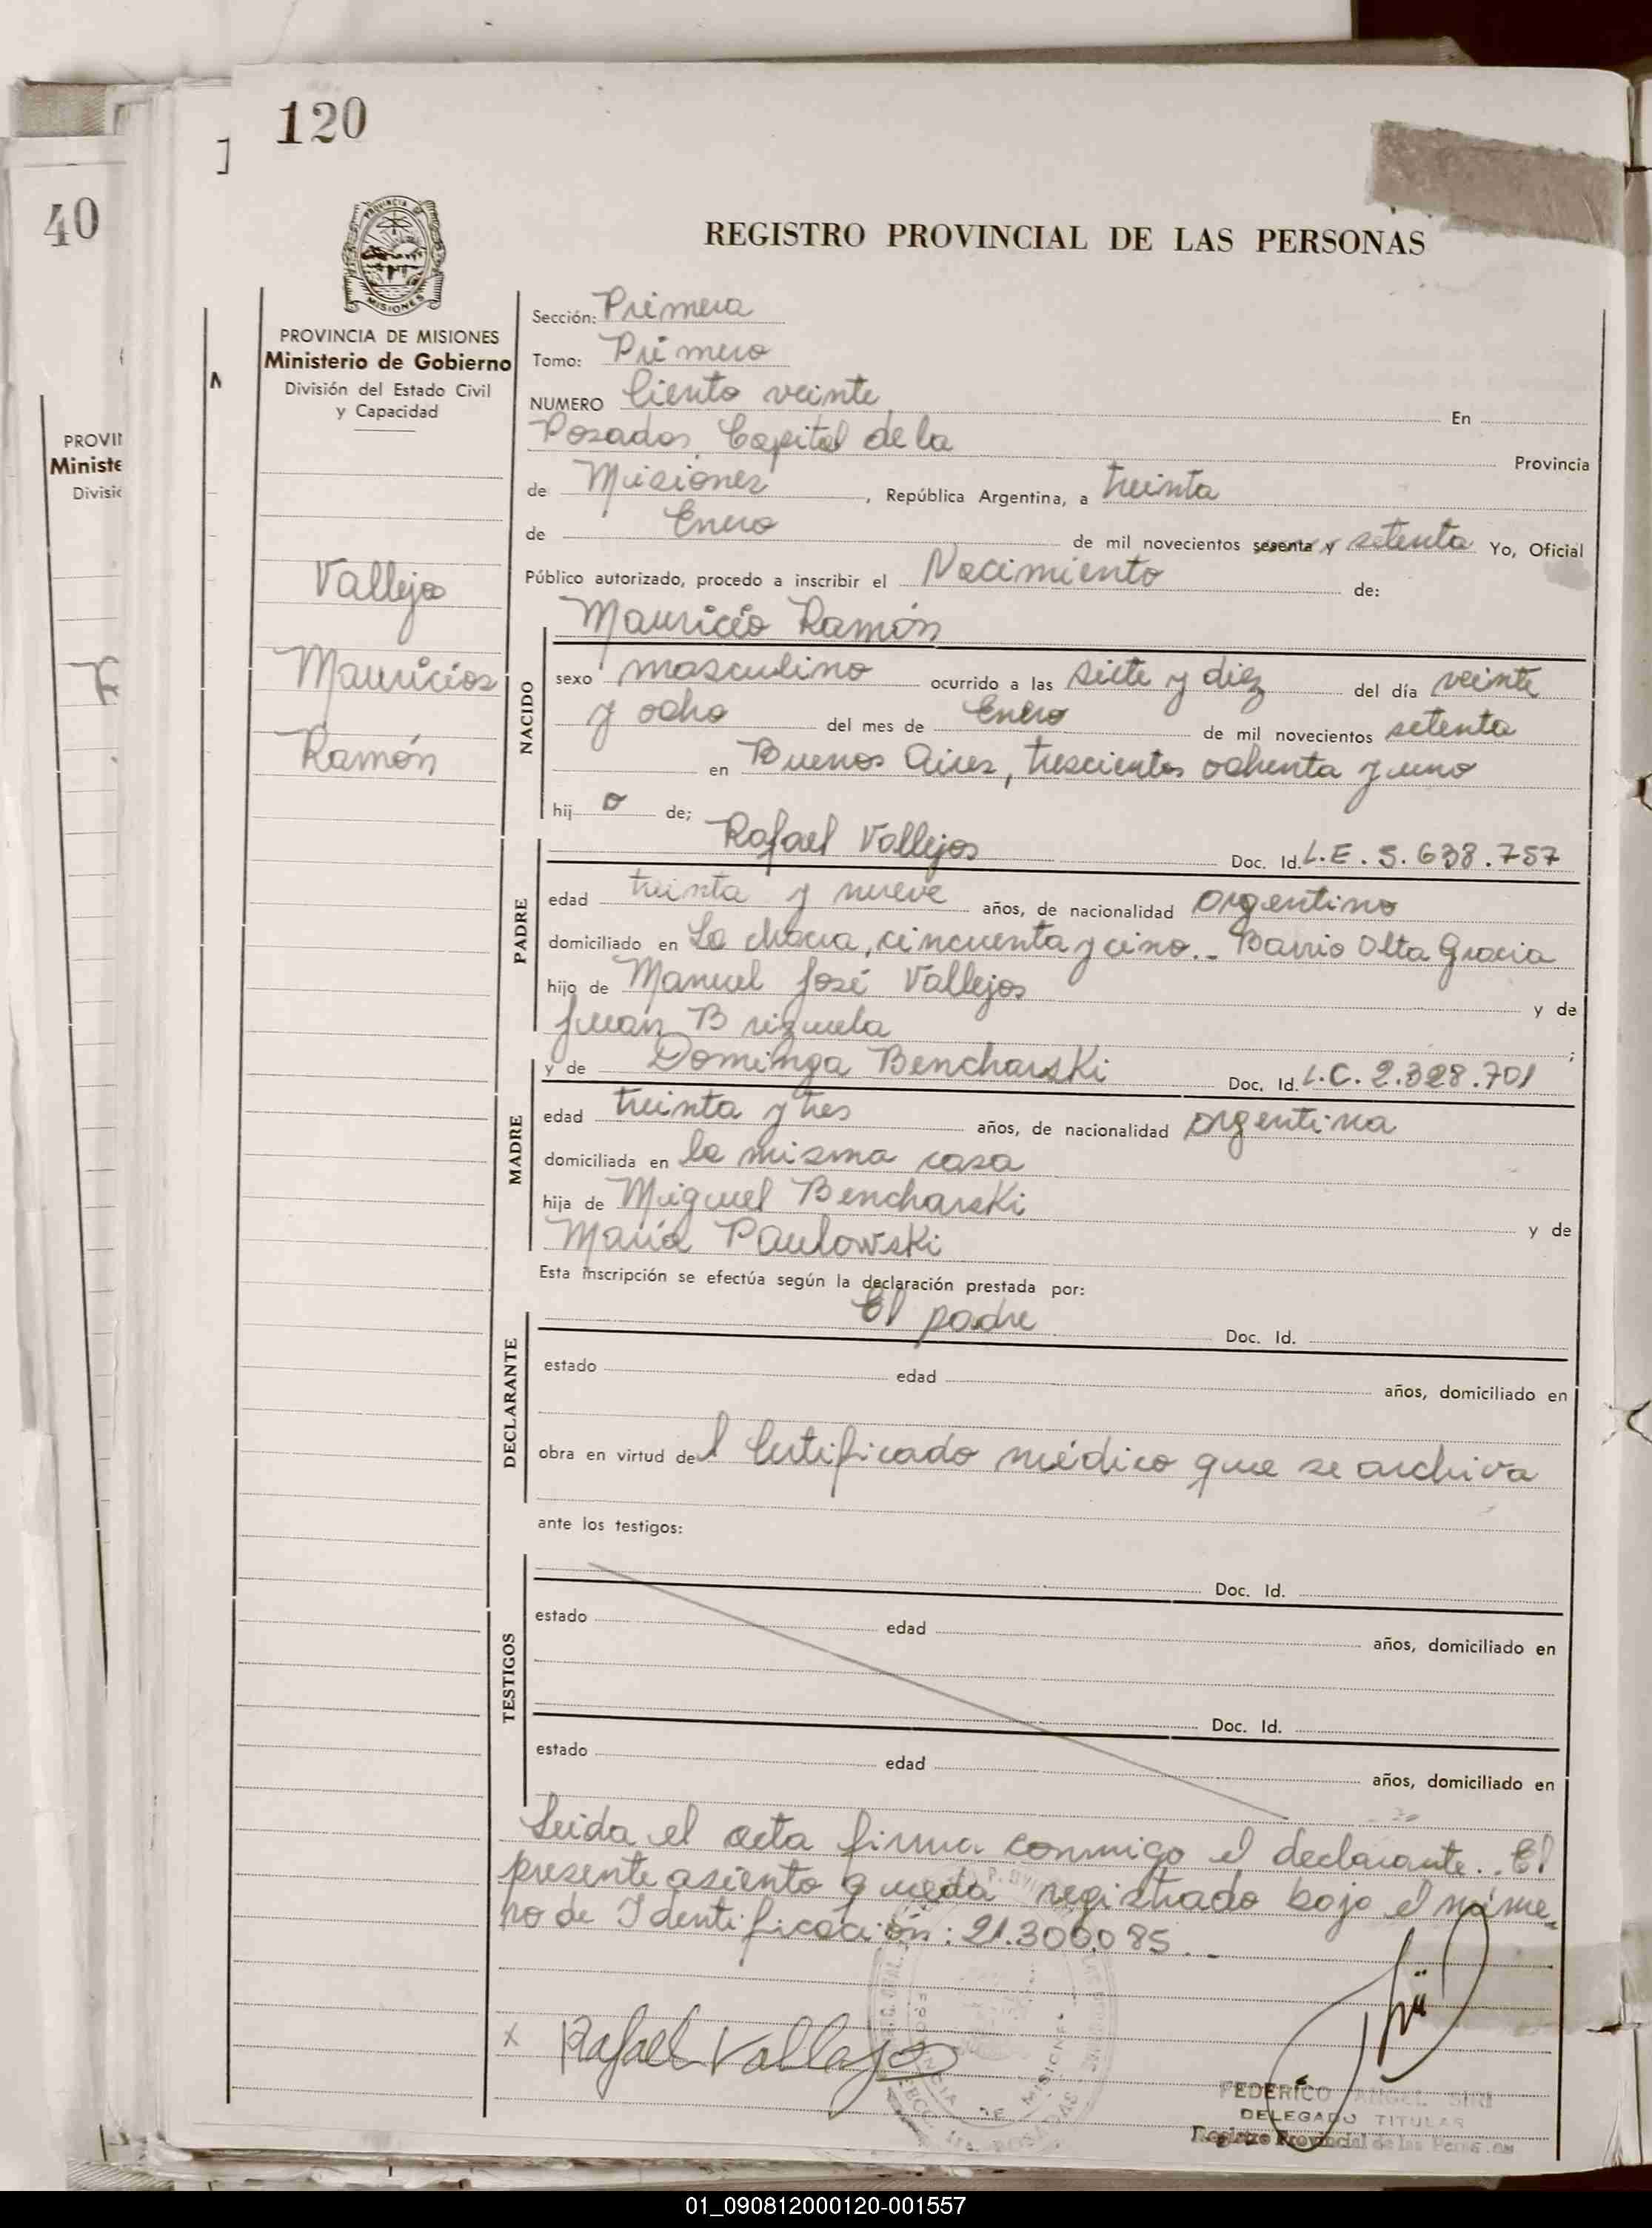 120
40
REGISTRO PROVINCIAL DE LAS PERSONAS
PROVINCIA DE MISIONES
Ministerio de Gobierno
División del Estado Civil
y Capacidad
PROVIN
Ministe
Divisió
Vallejo
Mauricios
Ramón
Sección: Primera
Tomo: Primero
NUMERO Ciento veinte En
Posadas, Capital de la Provincia
de Misiones, República Argentina, a treinta
de Enero de mil novecientos sesenta y setenta Yo, Oficial
Público autorizado, procedo a inscribir el Nacimiento de:
Mauricio Ramón
NACIDO
sexo masculino ocurrido a las siete y diez del día veinte
y ocho del mes de Enero de mil novecientos setenta
en Buenos Aires, trescientos ochenta y uno
hij o de;
Rafael Vallejos Doc. Id. L.E. 5.638.757
PADRE
edad treinta y nueve años, de nacionalidad argentino
domiciliado en La chacra, cincuenta y cino.. Barrio Alta Gracia
hijo de Manuel José Vallejos y de
Juan Brizuela ;
y de Dominga Bencharski Doc. Id. L.C. 2.328.701
MADRE
edad treinta y tres años, de nacionalidad argentina
domiciliada en la misma casa
hija de Miguel Bencharski y de
María Paulowski
Esta inscripción se efectúa según la declaración prestada por:
El padre Doc. Id.
DECLARANTE
estado edad años, domiciliado en
obra en virtud del Certificado médico que se archiva
ante los testigos:
Doc. Id.
TESTIGOS
estado edad años, domiciliado en
Doc. Id.
estado edad años, domiciliado en
Leida el acta firma conmigo el declarante.. El
presente asiento queda registrado bajo el núme-
ro de Identificación: 21.300.085.-
x Rafael Vallejos
FEDERICO ANGEL SIRI
DELEGADO TITULAR
Registro Provincial de las Personas
01_090812000120-001557